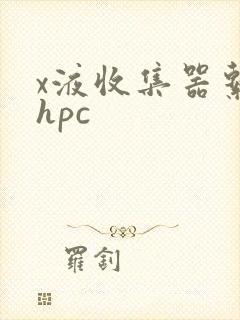 x液收集器
hpc
羅釗